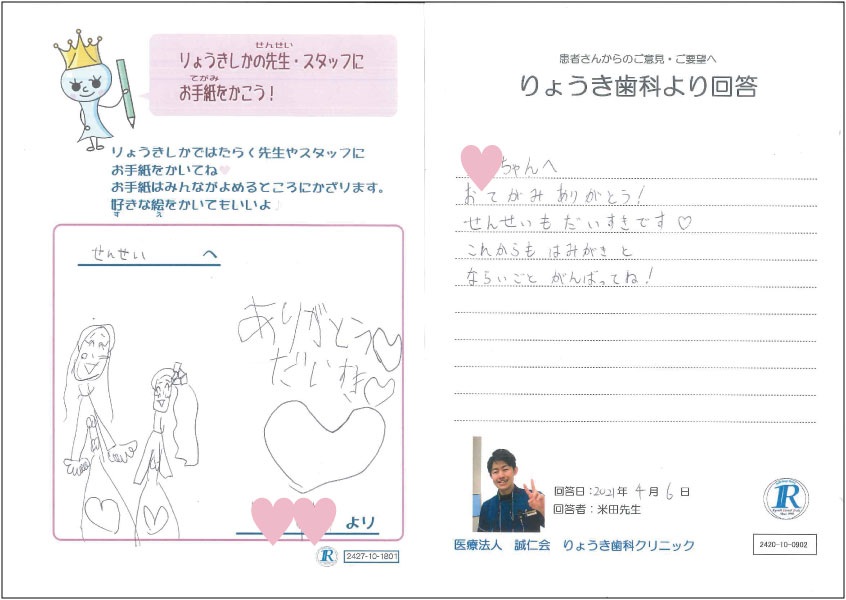 せんせい
りょうきしかの先生・スタッフに
てがみ
お手紙をかこう!
りょうきしかではたらく先生やスタッフに
お手紙をかいてね
お手紙はみんながよめるところにかざります。
好きな絵をかいてもいいよ♪
す え
せんせい へ
ありがとう
だい
より
2427-10-1801
患者さんからのご意見・ご要望へ
りょうき歯科より回答
ちゃんへ
おてがみ ありがとう!
せんせいも だいすきです♡
これからも はみがきと
ならいごと がんばってね!
回答日:2021年 4月 6日
回答者:米田先生
医療法人 誠仁会 りょうき歯科クリニック
2420-10-0902